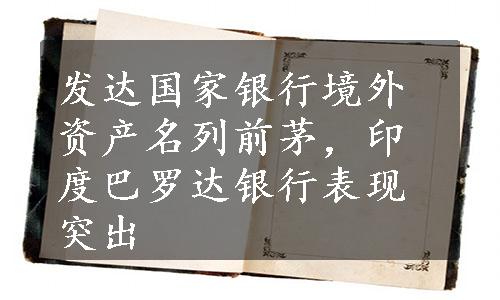 发达国家银行境外
资产名列前茅，印
度巴罗达银行表现
突出